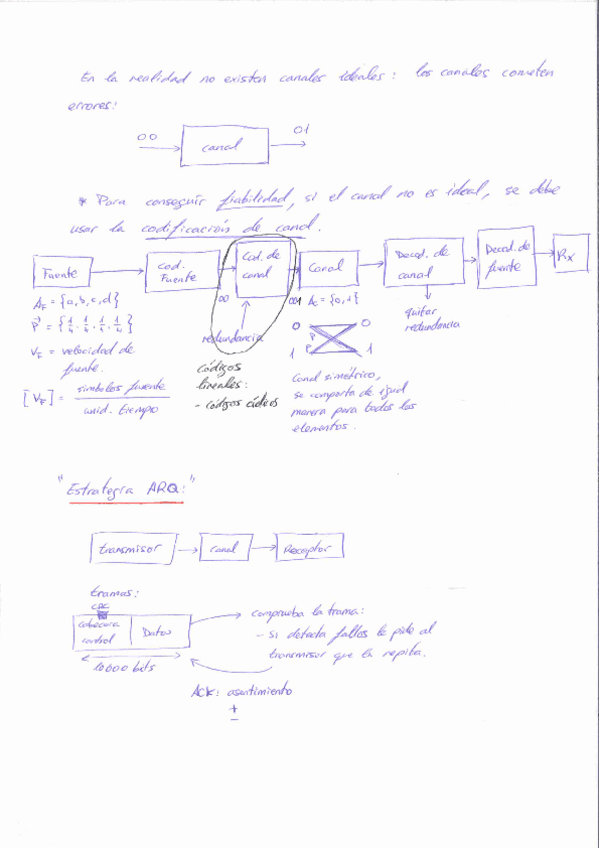 En la realidad no existen canales ideales: los canales cometen
errores:
00
canal
01
* Para conseguir fiabilidad, si el canal no es ideal, se debe
usar la codificación de canal.
Fuente
Cod. Fuente
Cod. de canal
Canal
Decod. de canal
Decod. de fuente
Rx
00
001
A_F = {a, b, c, d}
P = {1/4, 1/4, 1/4, 1/4}
V_F = velocidad de
fuente.
[V_F] = símbolos fuente / unid. tiempo
redundancia
códigos
lineales:
- códigos cíclicos
A_C = {0, 1}
0 0
P
P
1 1
Canal simétrico,
se comporta de igual
manera para todos los
elementos.
quitar
redundancia
"Estrategia ARQ:"
transmisor
canal
Receptor
tramas:
CRC
cabecera
control
Datos
10000 bits
comprueba la trama:
- si detecta fallos le pide al
transmisor que la repita.
ACK: asentimiento
+
-